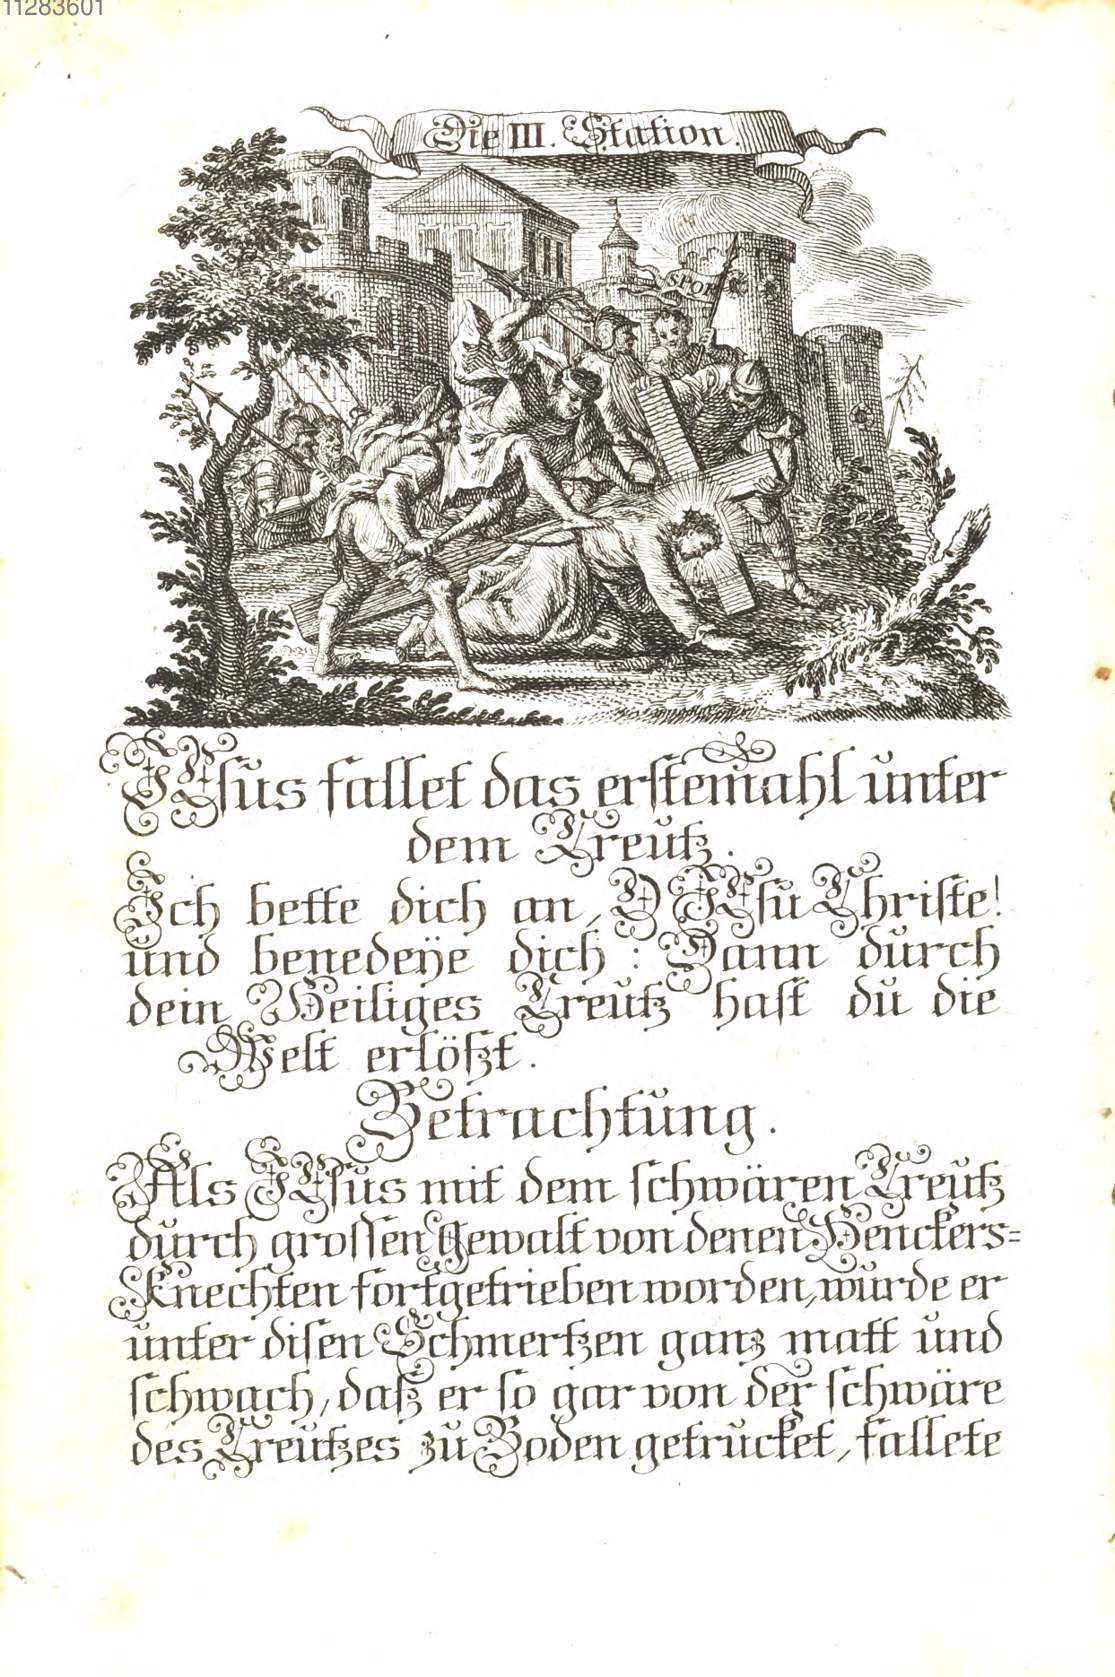 11283601
Die III. Station.
SPQR
JEsus fallet das erstemahl unter
dem Creutz.
Ich bette dich an, O JEsu Christe!
und benedeÿe dich: Dann durch
dein Heiliges Creutz hast du die
Welt erlößt.
Betrachtung.
Als JEsus mit dem schwären Creutz
durch grossen Gewalt von denen Henckers=
Knechten fortgetrieben worden, wurde er
unter disen Schmertzen ganz matt und
schwach, daß er so gar von der schwäre
des Creutzes zu Boden getrucket, fallete